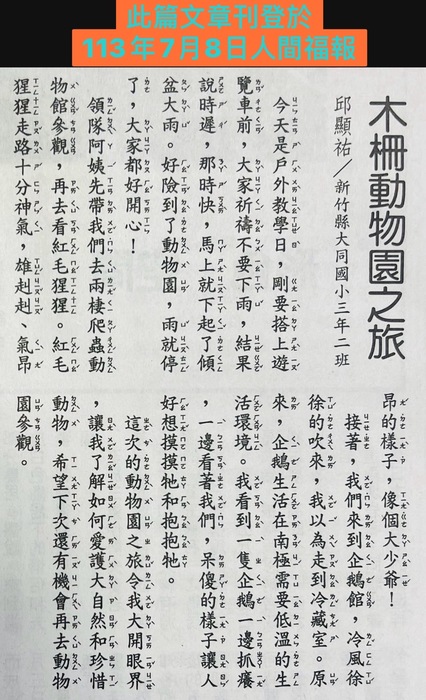 此篇文章刊登於
113年7月8日人間福報
木柵動物園之旅
邱顯祐／新竹縣大同國小三年二班
今天是戶外教學日，剛要搭上遊
覽車前，大家祈禱不要下雨，結果
說時遲，那時快，馬上就下起了傾
盆大雨。好險到了動物園，雨就停
了，大家都好開心！
領隊阿姨先帶我們去兩棲爬蟲動
物館參觀，再去看紅毛猩猩。紅毛
猩猩走路十分神氣，雄赳赳、氣昂
昂的樣子，像個大少爺！
接著，我們來到企鵝館，冷風徐
徐的吹來，我以為走到冷藏室。原
來，企鵝生活在南極需要低溫的生
活環境。我看到一隻企鵝一邊抓癢
，一邊看著我們，呆傻的樣子讓人
好想摸摸牠和抱抱牠。
這次的動物園之旅令我大開眼界
，讓我了解如何愛護大自然和珍惜
動物，希望下次還有機會再去動物
園參觀。